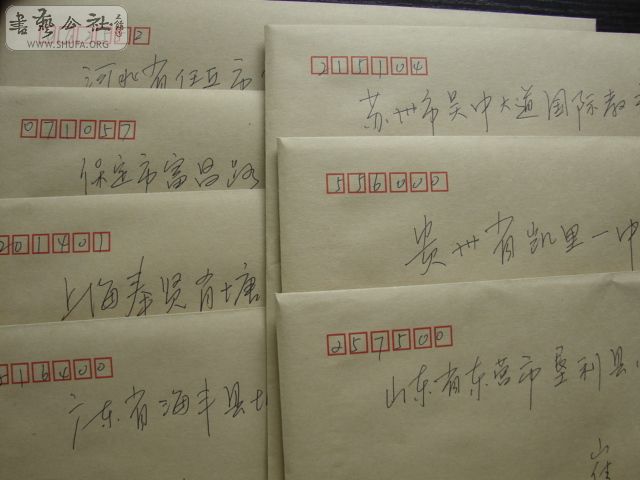 書藝公社
WWW.SHUFA.ORG
河北省任丘市
071057
保定市富昌路
201401
上海奉贤肖塘
516400
广东省海丰县
215104
苏州市吴中大道国际教
556000
贵州省凯里一中
257500
山东省东营市垦利县
崔